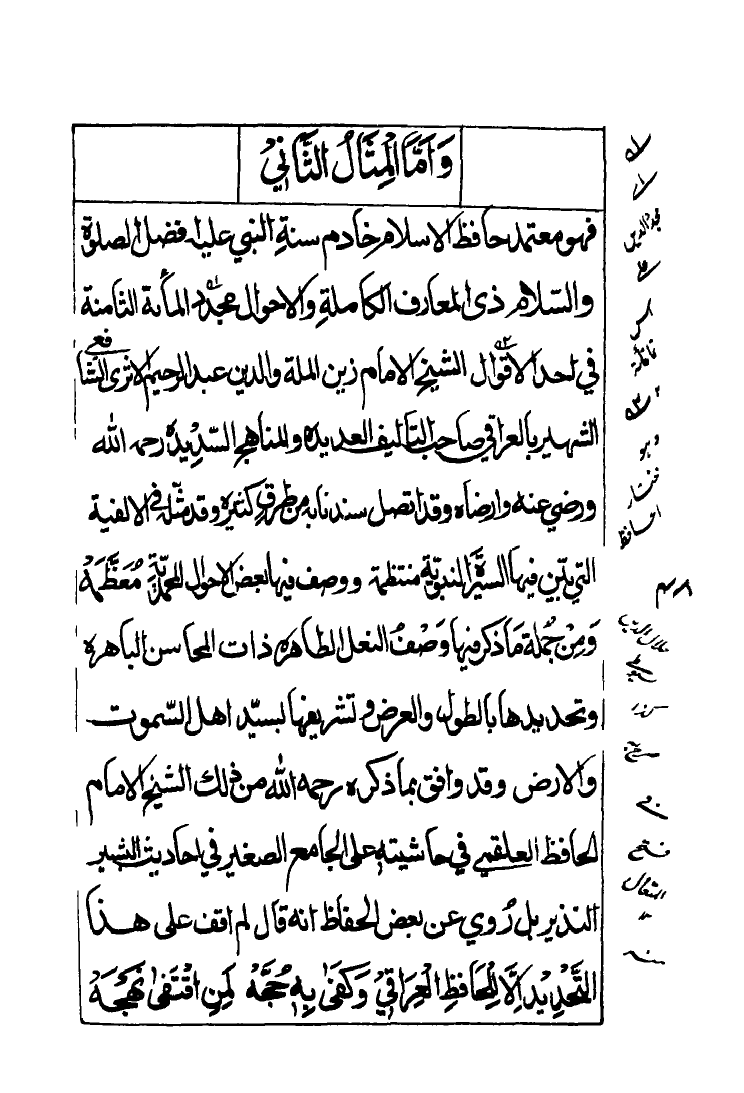 وَاَمَّا الْمِثَالُ الثَّانِيْ
فهو معتمد حافظ الاسلام خادم سنةِ النبي عليه فضل الصلوة
والسّلام ذى المعارف الكاملةِ والاحوال مجدد المأىة الثامنة
في احد الاقوال الشيخ الامام زين الملة والدين عبد الرحيم الاثرى الشافعي
الشهير بالعراقي صاحب التاٰليف العديده والمناهج السّدِيده رحمه الله
ورضي عنه وارضاه وقد اتصل سندنا به من طرقٍ كثيره وقد مثّله في الالفية
التي بيّن فيها السيرَة النبويّة منتظمة ووصف فيها بعض الاحوال المحمّديّة مُعَظَّمَهْ
وَمِنْ جُملة مَا ذكر فيها وَصْفُ النعل الطاهره ذات المحاسن الباهره
وتحديدها بالطول والعرض وتشريفها بسيّد اهل السّموت
والارض وقد وافق بما ذكره رحمه الله من ذلك الشيخ الامام
الحافظ العلقمي في حاشيته على الجامع الصغير في احاديث البشير
النذير بل رُوي عن بعض الحفاظ انه قال لم اقف على هـذا
التَّحْدِيْدِ اِلَّا لِلْحَافِظِ الْعِرَاقِيْ وَكَفَىٰ بِهٖ حُجَّهْ لِمَنِ اقْتَفَىٰ نَهْجَهْ
مجد الدين
وہو
مختار
الحافظ
۴۸
جلال الدين
سيوطي
فتح
المتعال
"
منه